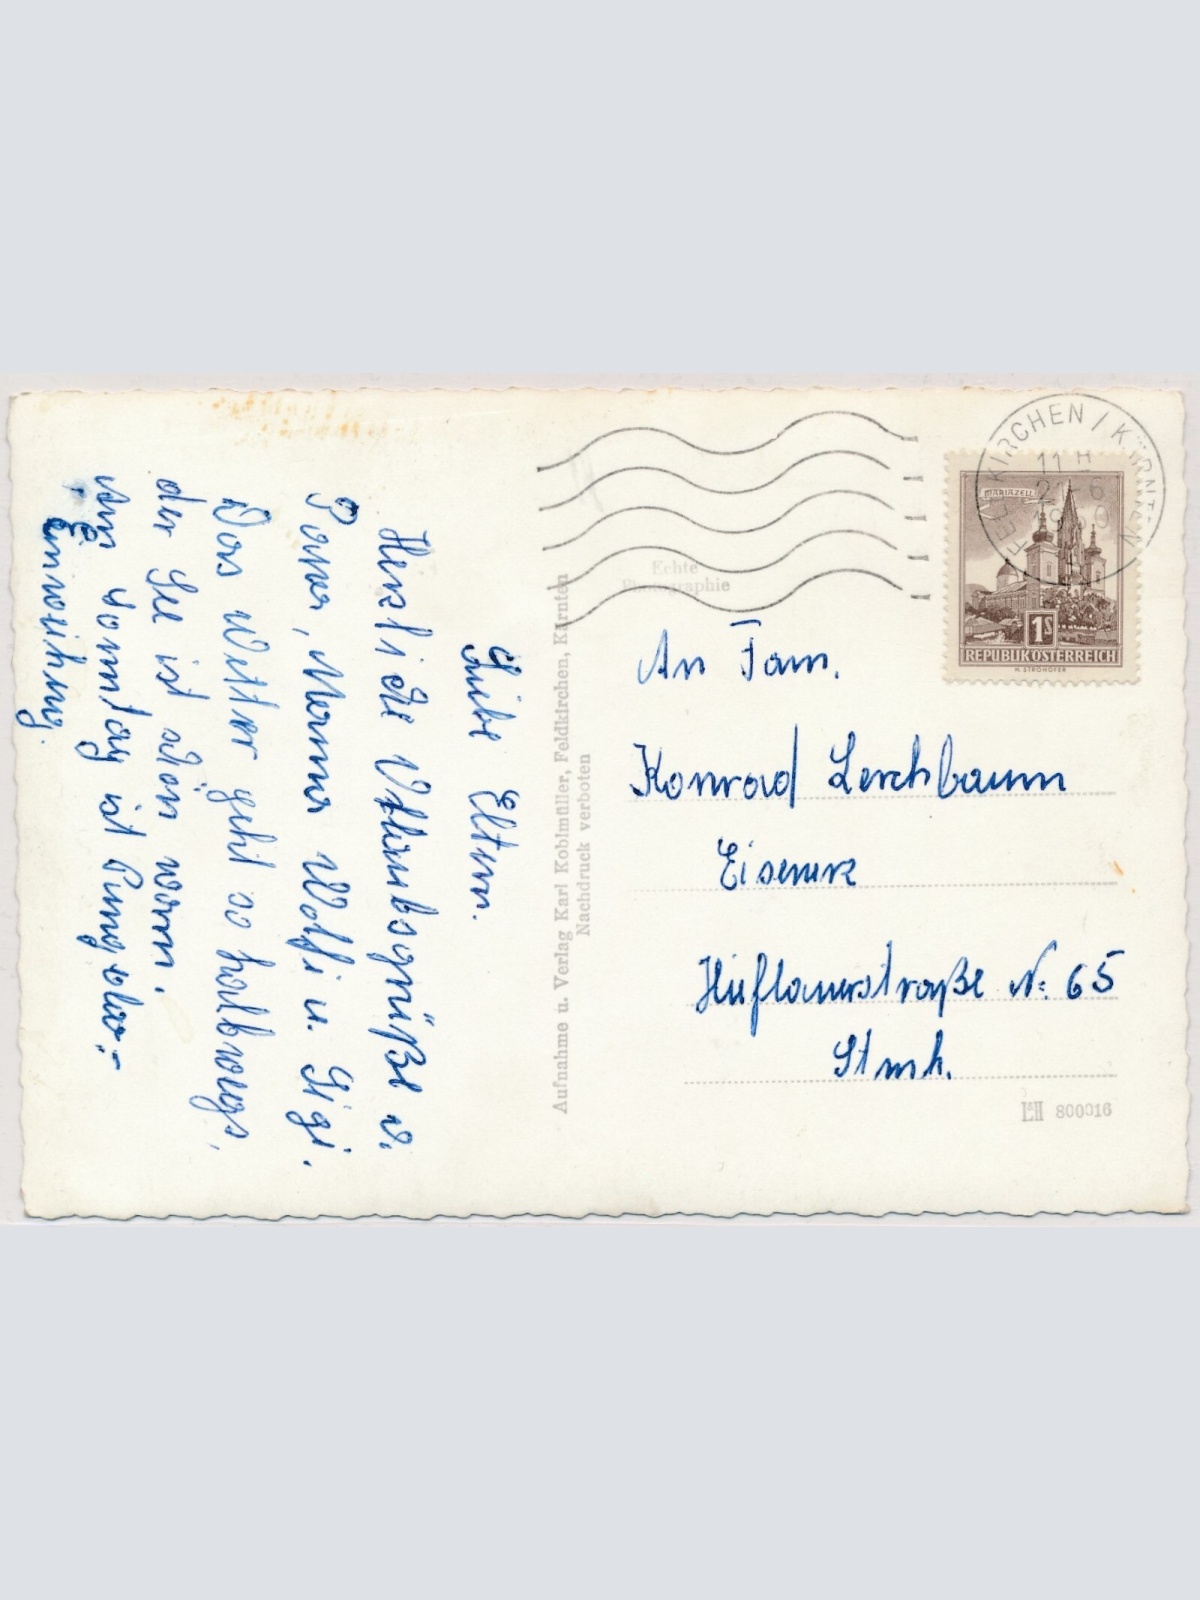 Liebe Eltern.
Herzliche Urlaubsgrüße v.
Papa, Mama Wolfi u. Sigi.
Das Wetter geht so halbwegs,
der See ist schön warm.
Am Sonntag ist
Einweihung.
Aufnahme u. Verlag Karl Koblmüller, Feldkirchen, Kärnten
Nachdruck verboten
Echte
Photographie
FELDKIRCHEN / KÄRNTEN
11 H
MARIAZELL
1S
REPUBLIK ÖSTERREICH
H. STROHOFER
An Fam.
Konrad Lerchbaum
Eisenerz
Hieflauerstraße N: 65
Stmk.
L&H 800016